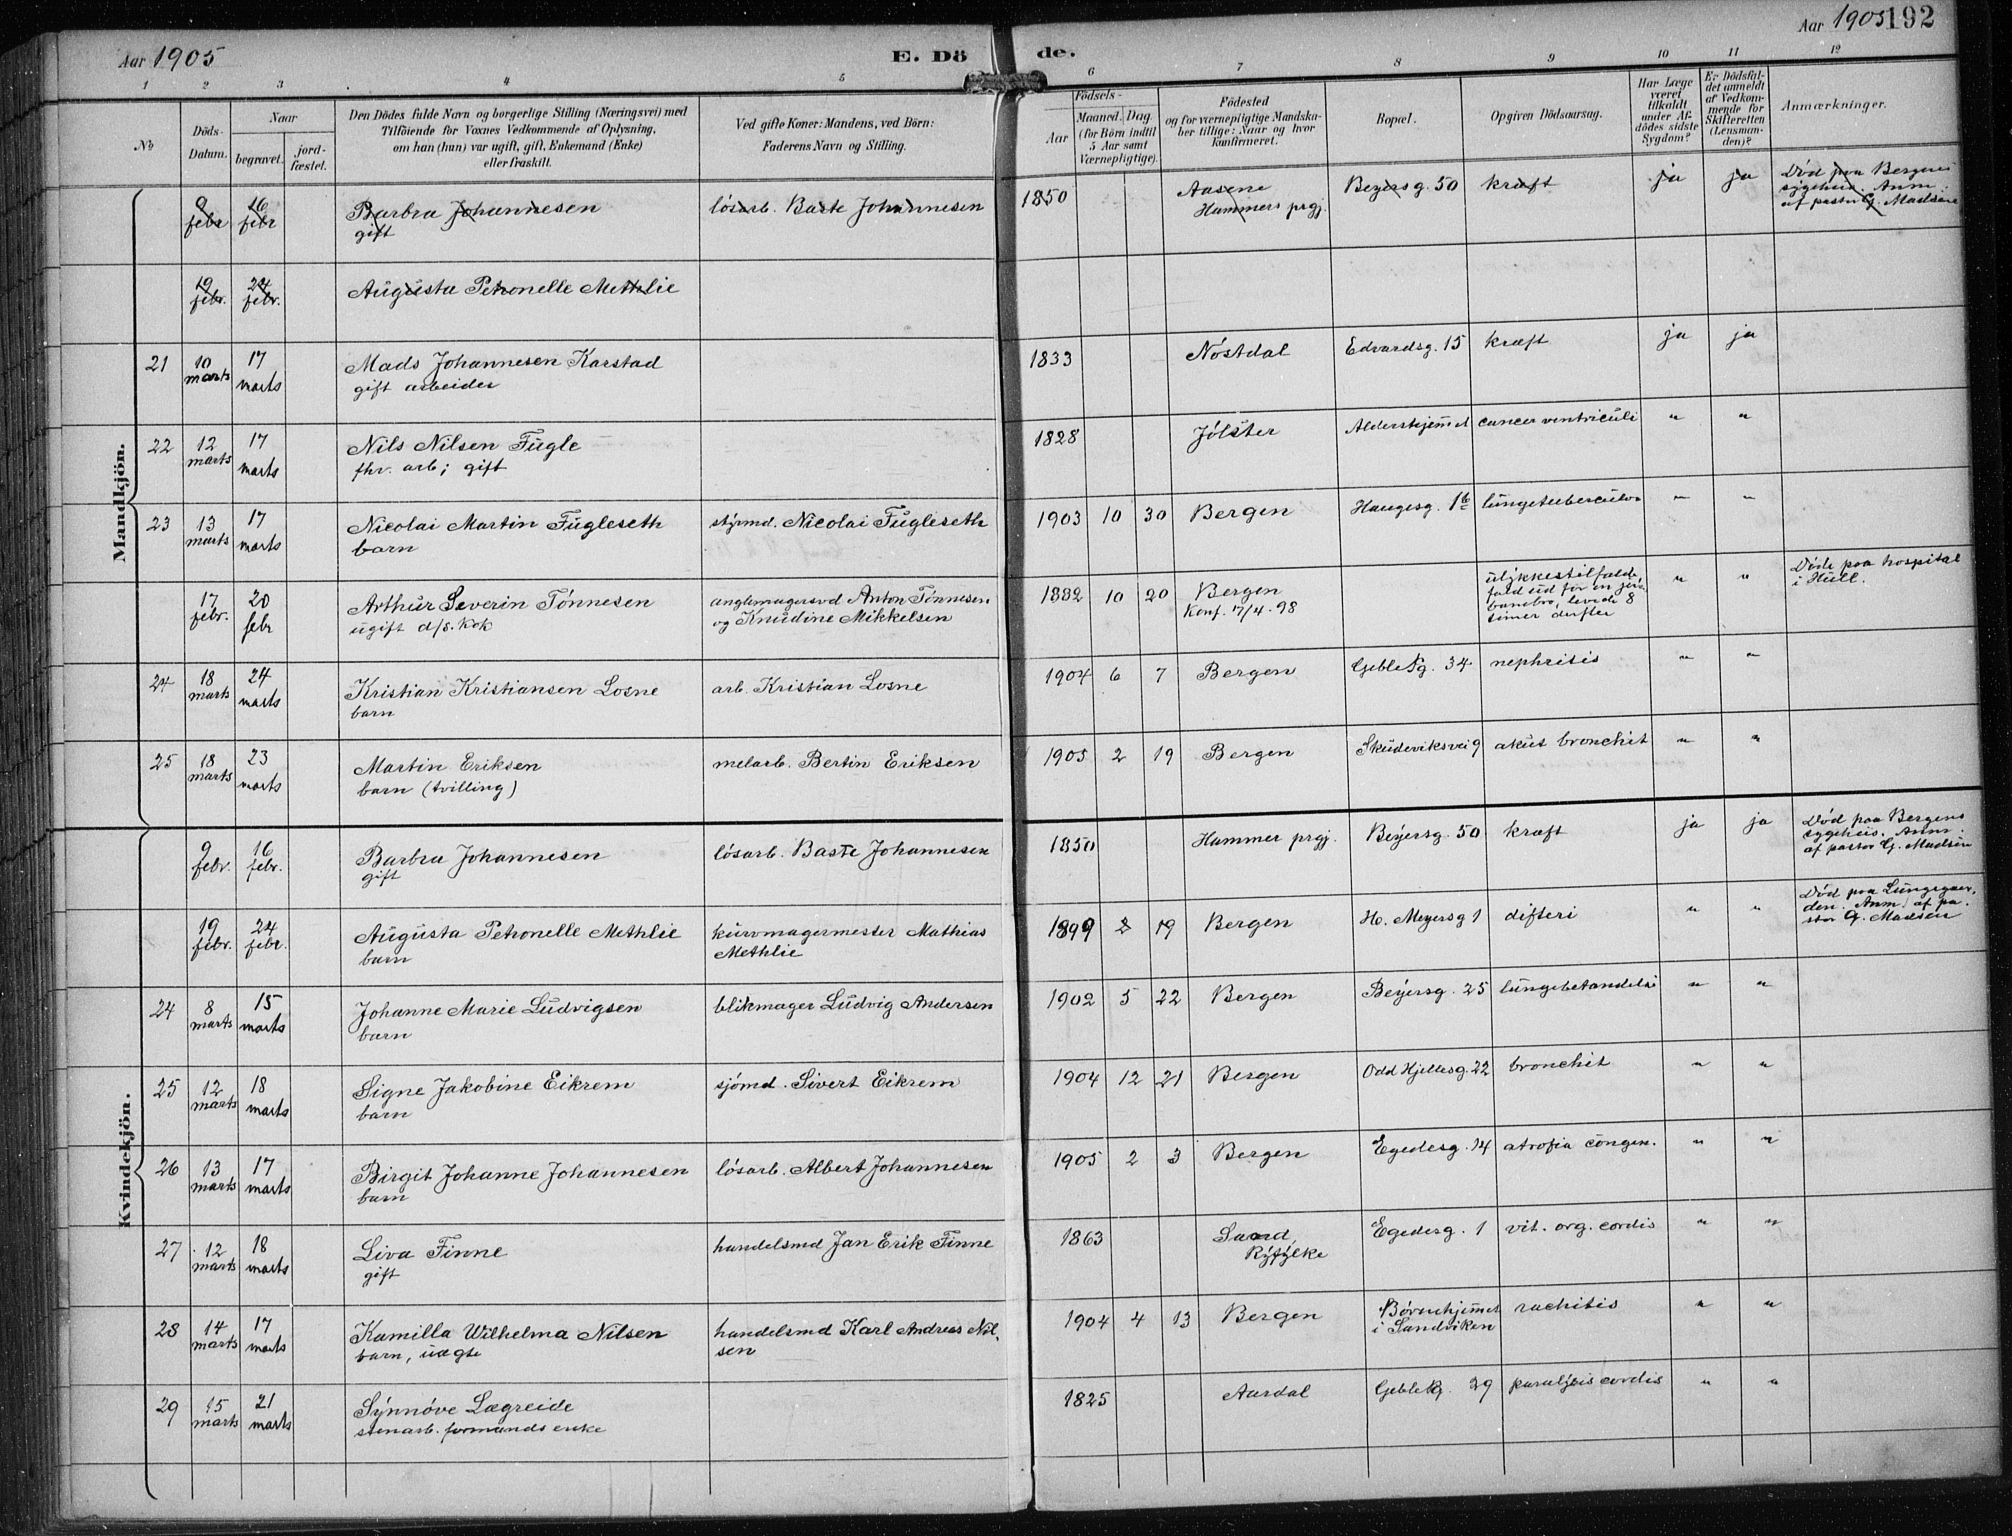 Aar 1905
E. Dö
de.
Aar 1905 192
1 2 3 4 5 6 7 8 9 10 11 12
No
Döds-Datum.
Naar
begravet.
jord-fæstet.
Den Dödes fulde Navn og borgerlige Stilling (Næringsvei) med
Tilföiende for Voxnes Vedkommende af Oplysning,
om han (hun) var ugift, gift, Enkemand (Enke)
eller fraskilt.
Ved gifte Koner: Mandens, ved Börn:
Faderens Navn og Stilling.
Födsels-
Aar
Maaned. Dag
(for Börn indtil
5 Aar samt
Værnepligtige).
Födested
og for værnepligtige Mandska-
ber tillige: Naar og hvor
konfirmeret.
Bopæl.
Opgiven Dödsaarsag.
Har Læge
været
tilkaldt
under Af-
dödes sidste
Sygdom?
Er Dödsfal-
det anmeldt
af Vedkom-
mende for
Skifteretten
(Lensman-
den)?
Anmærkninger.
Mandkjön.
9 febr 16 febr Barbra Johannesen løsarb. Baste Johannesen 1850 Aasene Beyersg. 50 kræft ja ja Død paa Bergens
gift Hammers prgj. sygehus. Anm.
af pastor G. Madsen
19 febr. 24 febr. Augusta Petronelle Methlie
21 10 marts 17 marts Mads Johannesen Karstad 1833 Nøstdal Edvardsg. 15 kræft ja ja
gift arbeider
22 12 marts 17 marts Nils Nilsen Fugle 1828 Jølster Aldershjemmet cancer ventriculi " "
fhv. arb; gift
23 13 marts 17 marts Nicolai Martin Fugleseth styrmd. Nicolai Fugleseth 1903 10 30 Bergen Haugesg. 1 lungetuberculos " "
barn
17 febr. 20 febr Arthur Severin Tønnesen anglemagersvd Anton Tønnesen 1882 10 20 Bergen ulykkestilfælde, " " Døde paa hospital
ugift d/s. kok og Knudine Mikkelsen Konf. 7/4-98 fald ud for en jern- i Hull.
banebro, levede 8
timer derefter
24 18 marts 24 marts Kristian Kristiansen Losne arb. Kristian Losne 1904 6 7 Bergen Geble Pg. 34 nephritis " "
barn
25 18 marts 23 marts Martin Eriksen melarb. Bertin Eriksen 1905 2 19 Bergen Skudeviksvei 9 akut bronchit " "
barn (tvilling)
Kvindekjön.
9 febr. 16 febr. Barbra Johannesen løsarb. Baste Johannesen 1850 Hammer prgj. Beyersg. 50 kræft ja ja Død paa Bergens
gift sygehus. Anm.
af pastor G. Madsen
19 febr. 24 febr. Augusta Petronelle Methlie kurvmagermester Mathias 1899 2 19 Bergen H. Meyersg 1 difteri " " Død paa Lungegaar-
barn Methlie den. Anm. af pa-
stor G. Madsen
24 8 marts 15 marts Johanne Marie Ludvigsen blikmager Ludvig Andersen 1902 5 22 Bergen Beyersg. 25 lungebetændelse " "
barn
25 12 marts 18 marts Signe Jakobine Eikrem sjømd. Sivert Eikrem 1904 12 21 Bergen Odd Hjeltesg. 22 bronchit " "
barn
26 13 marts 17 marts Birgit Johanne Johannesen løsarb. Albert Johannesen 1905 2 3 Bergen Egedesg. 14 atrofia congen. " "
barn
27 12 marts 18 marts Liva Finne handelsmd Jan Erik Finne 1863 Saand, Egedesg. 1 vit. org. cordis " "
gift Ryfylke
28 14 marts 17 marts Kamilla Wilhelma Nilsen handelsmd Karl Andreas Nil- 1904 4 13 Bergen Børnehjemmet rachitis " "
barn, uægte sen i Sandviken
29 15 marts 21 marts Synnøve Lægreide 1825 Aardal Geble Pg. 29 paralysis cordis " "
stenarb. formands enke